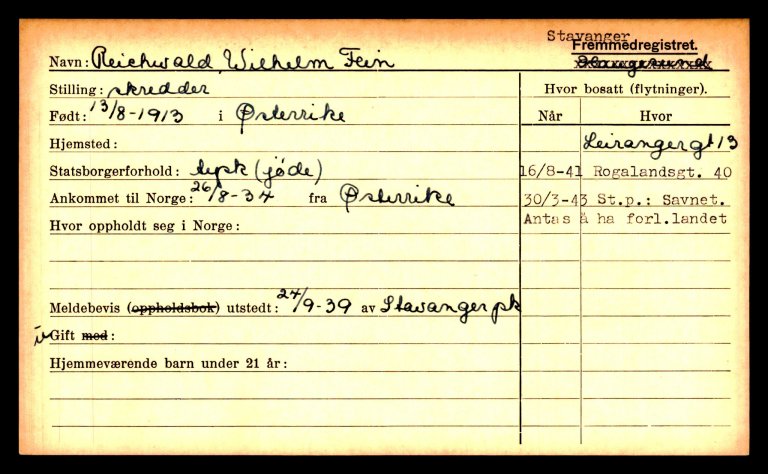 Stavanger
Fremmedregistret.
Haugesund
Navn: Reichwald, Wilhelm Fein
Stilling: skredder
Født: 13/8-1913 i Østerrike
Hjemsted:
Statsborgerforhold: tysk (jøde)
Ankommet til Norge: 26/8-34 fra Østerrike
Hvor oppholdt seg i Norge:
Meldebevis (oppholdsbok) utstedt: 24/9-39 av Stavanger pk
Gift med:
Hjemmeværende barn under 21 år:
Hvor bosatt (flytninger).
Når Hvor
Leirangergt 13
16/8-41 Rogalandsgt. 40
30/3-43 St.p.: Savnet.
Antas å ha forl.landet